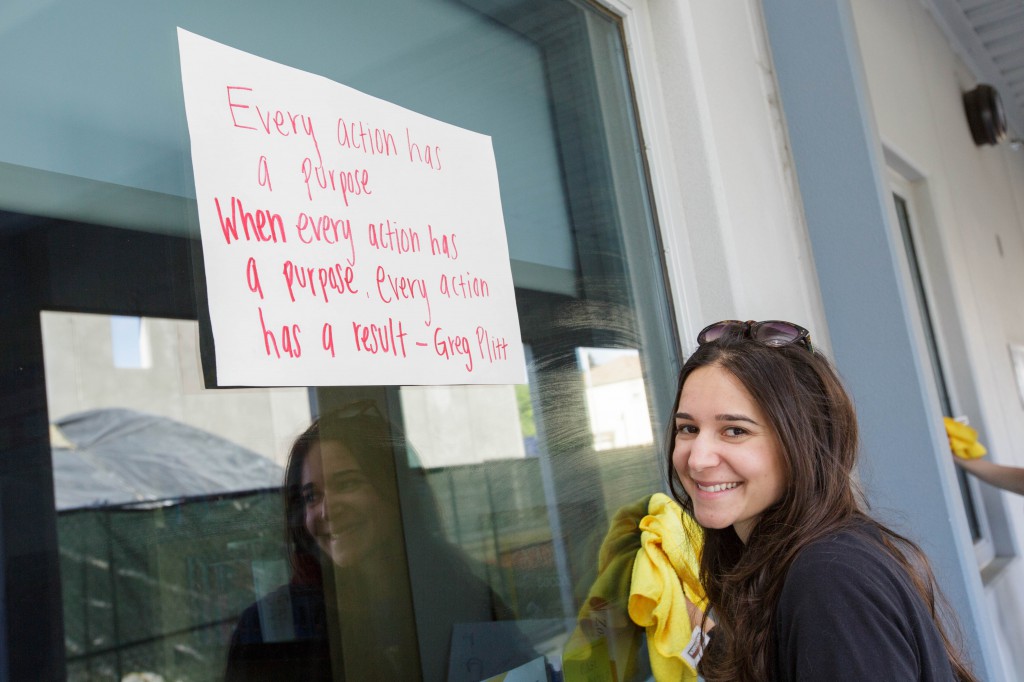 Every action has
a purpose
When every action has
a purpose, every action
has a result - Greg Plitt